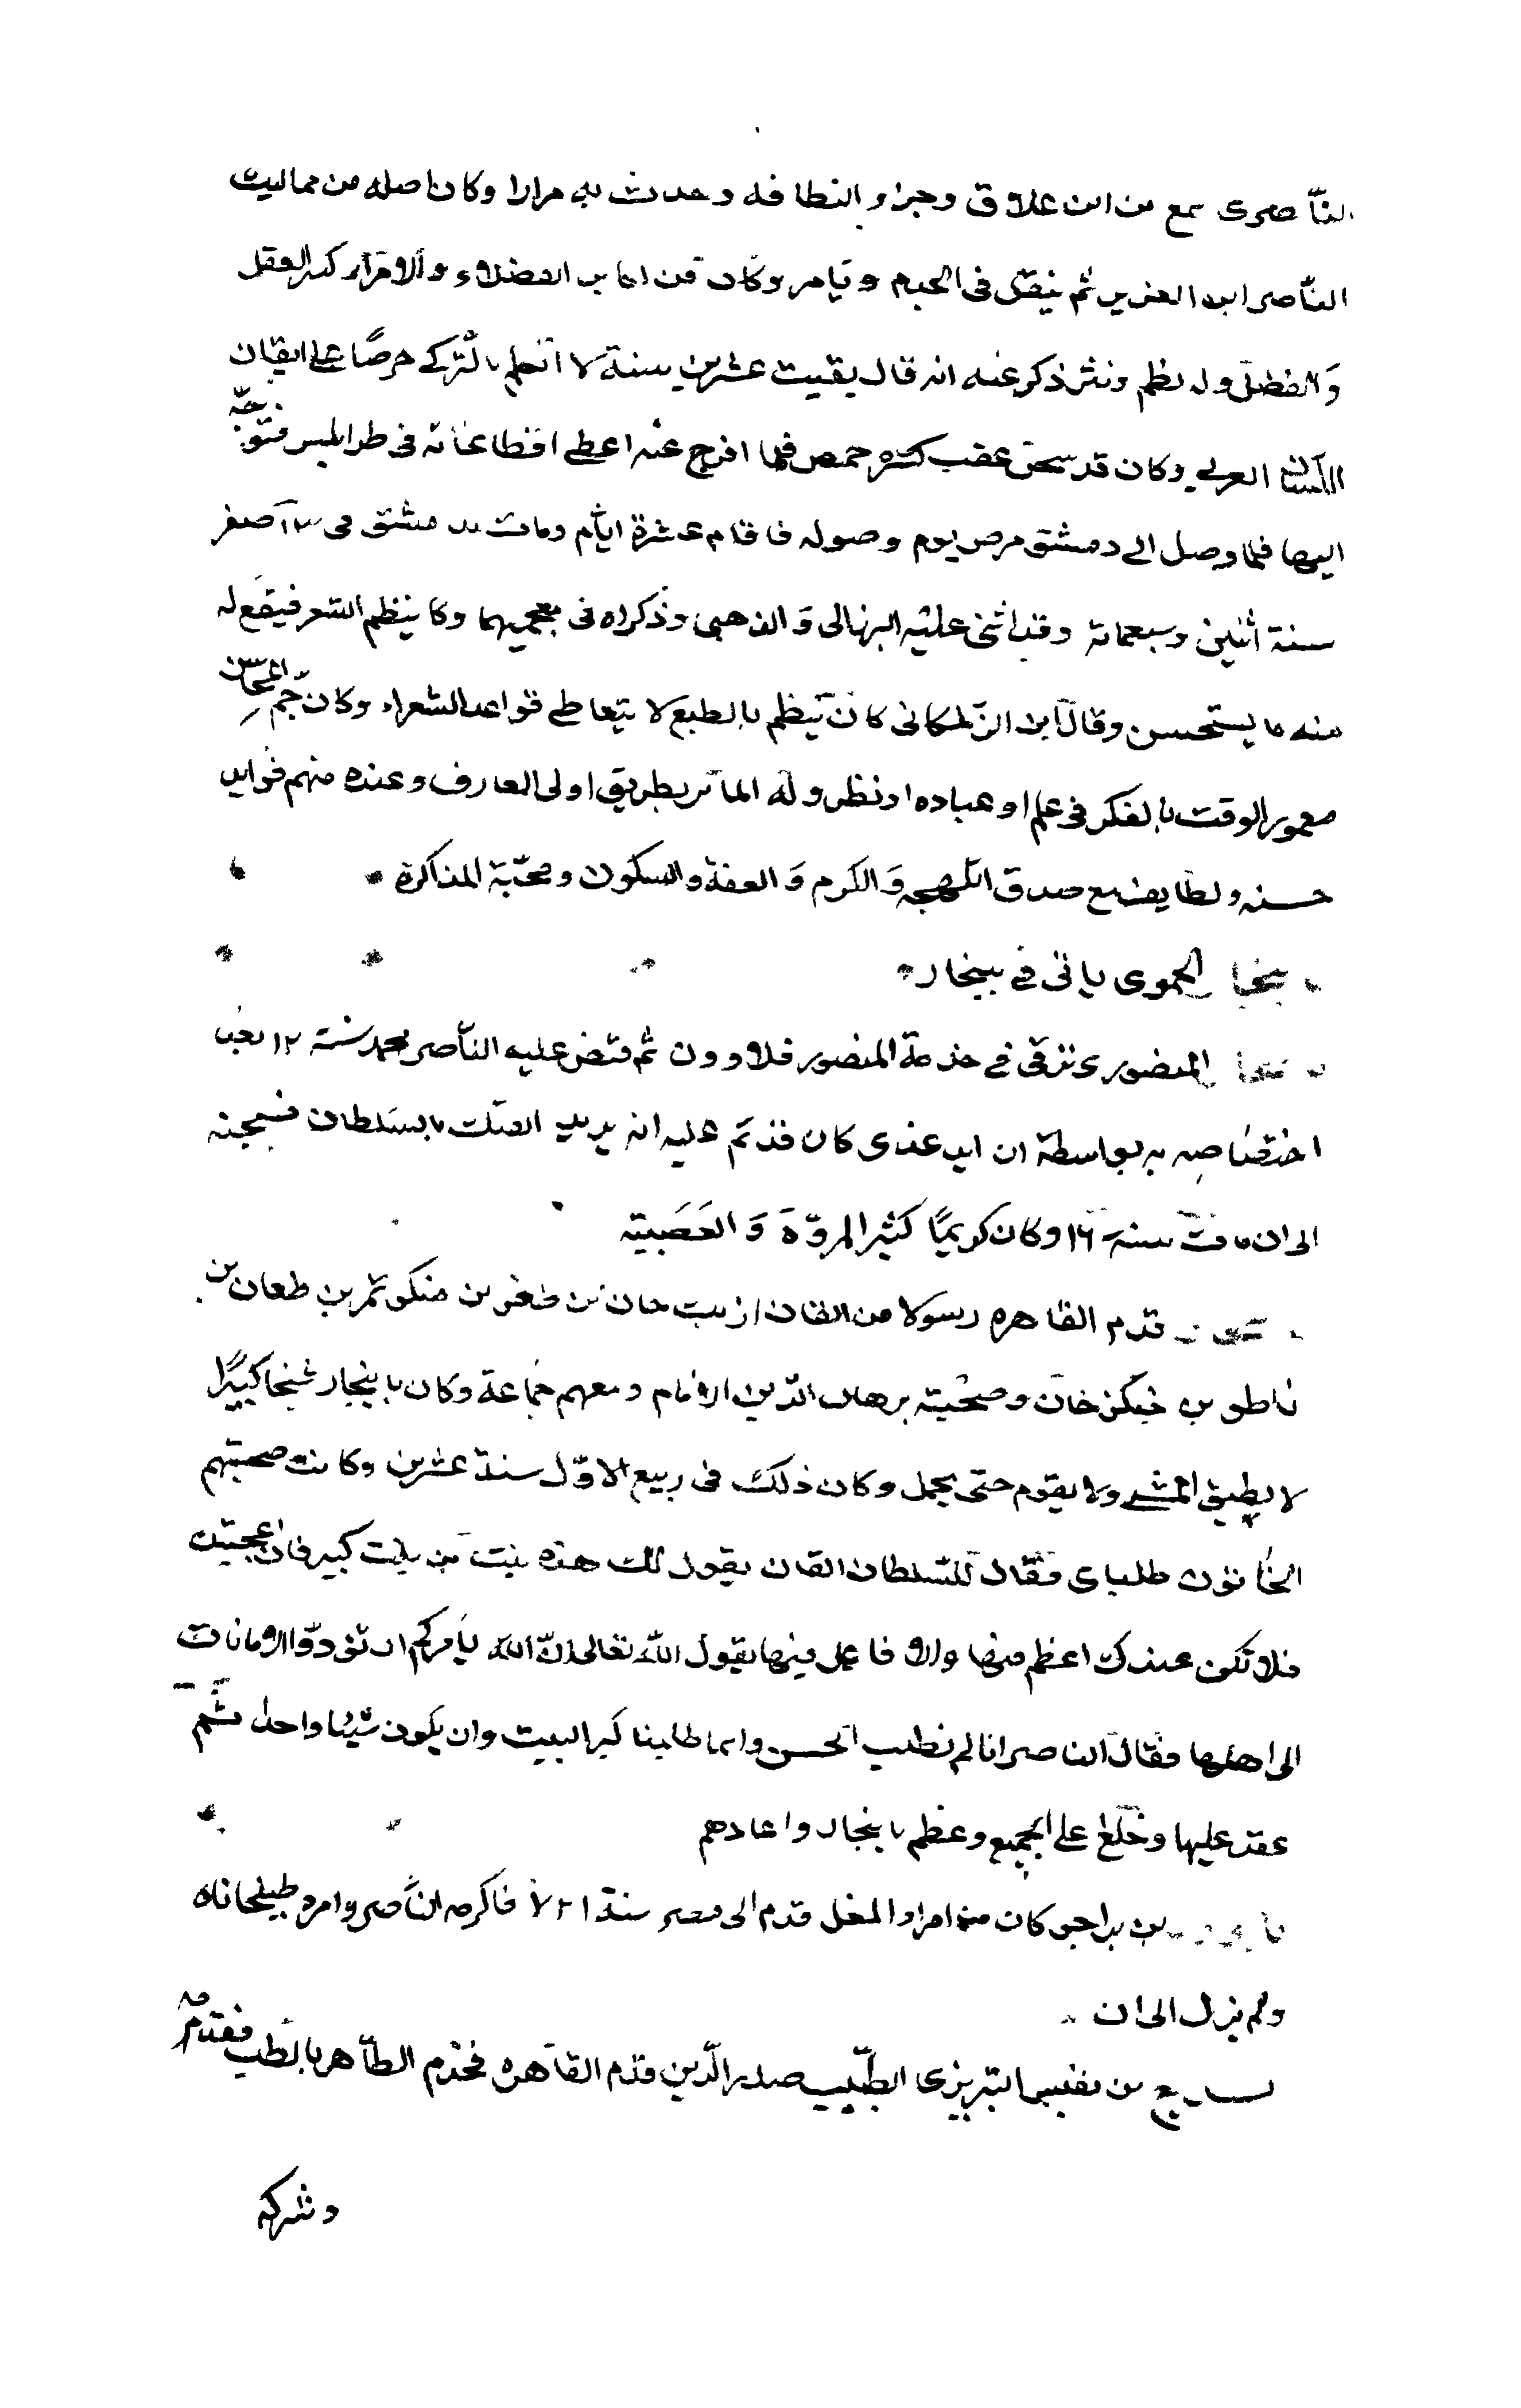 الناصرى سمع من ابن علاق وجزاء البطاقه وحدث به مرارا وكان اصله من مماليك
الناصر ابن العزيز ثم ترقى فى الخدم وتامر وكان من اماثل الفضلاء والامراء كبير العقل
والفضل وله نظم ونثر ذكر عنه انه قال بقيت عشرين سنة لا اتكلم بالتركي حرصًا على اتقان
اللسان العربي وكان قد سجن عقب كسرة حمص فلما افرج عنه اعطى اقطاعاته فى طرابلس فتوجه
اليها فلما وصل الى دمشق مرض يوم وصوله فاقام عشرة ايام ومات بدمشق فى صفر
سنة اثنين وسبعمائة وقد اثنى عليه البرزالى والذهبى وذكراه فى معجميهما وكان ينظم الشعر فيقع له
منه ما يستحسن وقال ابن الزملكانى كان ينظم بالطبع لا يتعاطى قواعد الشعراء وكان جم المحاسن
معمور الوقت بالفكر فى علم او عباده او نظر وله المام بطريق اولى المعارف وعنده منهم فوايد
حسنه ولطايف مع صدق اللهجه والكرم والعفة والسكون ومحبة المذاكرة
الحموى ياتى فى بينجار
المنصورى ترقى فى خدمة المنصور قلاوون ثم قبض عليه الناصر محمد سنة ١٢ بعد
اختصاصه به بواسطة ان ايدغدى كان قد نم عليه انه يريد الفتك بالسلطان فسجنه
الى ان مات سنة ١٦ وكان كريمًا كثير المروّة والعصبية
قدم القاهره رسولا من القان ازبك خان بن طغر بن منكوتمر بن طغان بن
باطو بن جنكز خان وصحبته برهان الدين الامام ومعهم جماعة وكان باينجار شيخا كبيرًا
لا يطيق المشى ولا يقوم حتى يحمل وكان ذلك فى ربيع الاول سنة عشرين وكانت صحبتهم
الخاتون طلباى فقال للسلطان القان يقول لك هذه بنت من بيت كبير فان اعجبتك
فلا تكن عندك اعظم منها والا فاعمل فيها بقول الله تعالى ان الله يأمركم ان تؤدوا الامانات
الى اهلها فقال الناصر انا لم نطلب الحسن وانما طلبنا كبر البيت وان يكون شيئا واحدا ثم
عقد عليها وخلع على الجميع وعظم باينجار واعادهم
بن براجو كان من امراء المغل قدم الى مصر سنة ٧٢١ فاكرمه الناصر وامره طبلخاناه
ولم يزل الى ان
بن نفيس التبريزى الطبيب صدر الدين قدم القاهره فخدم الظاهر بالطب فقدمه
وشركه